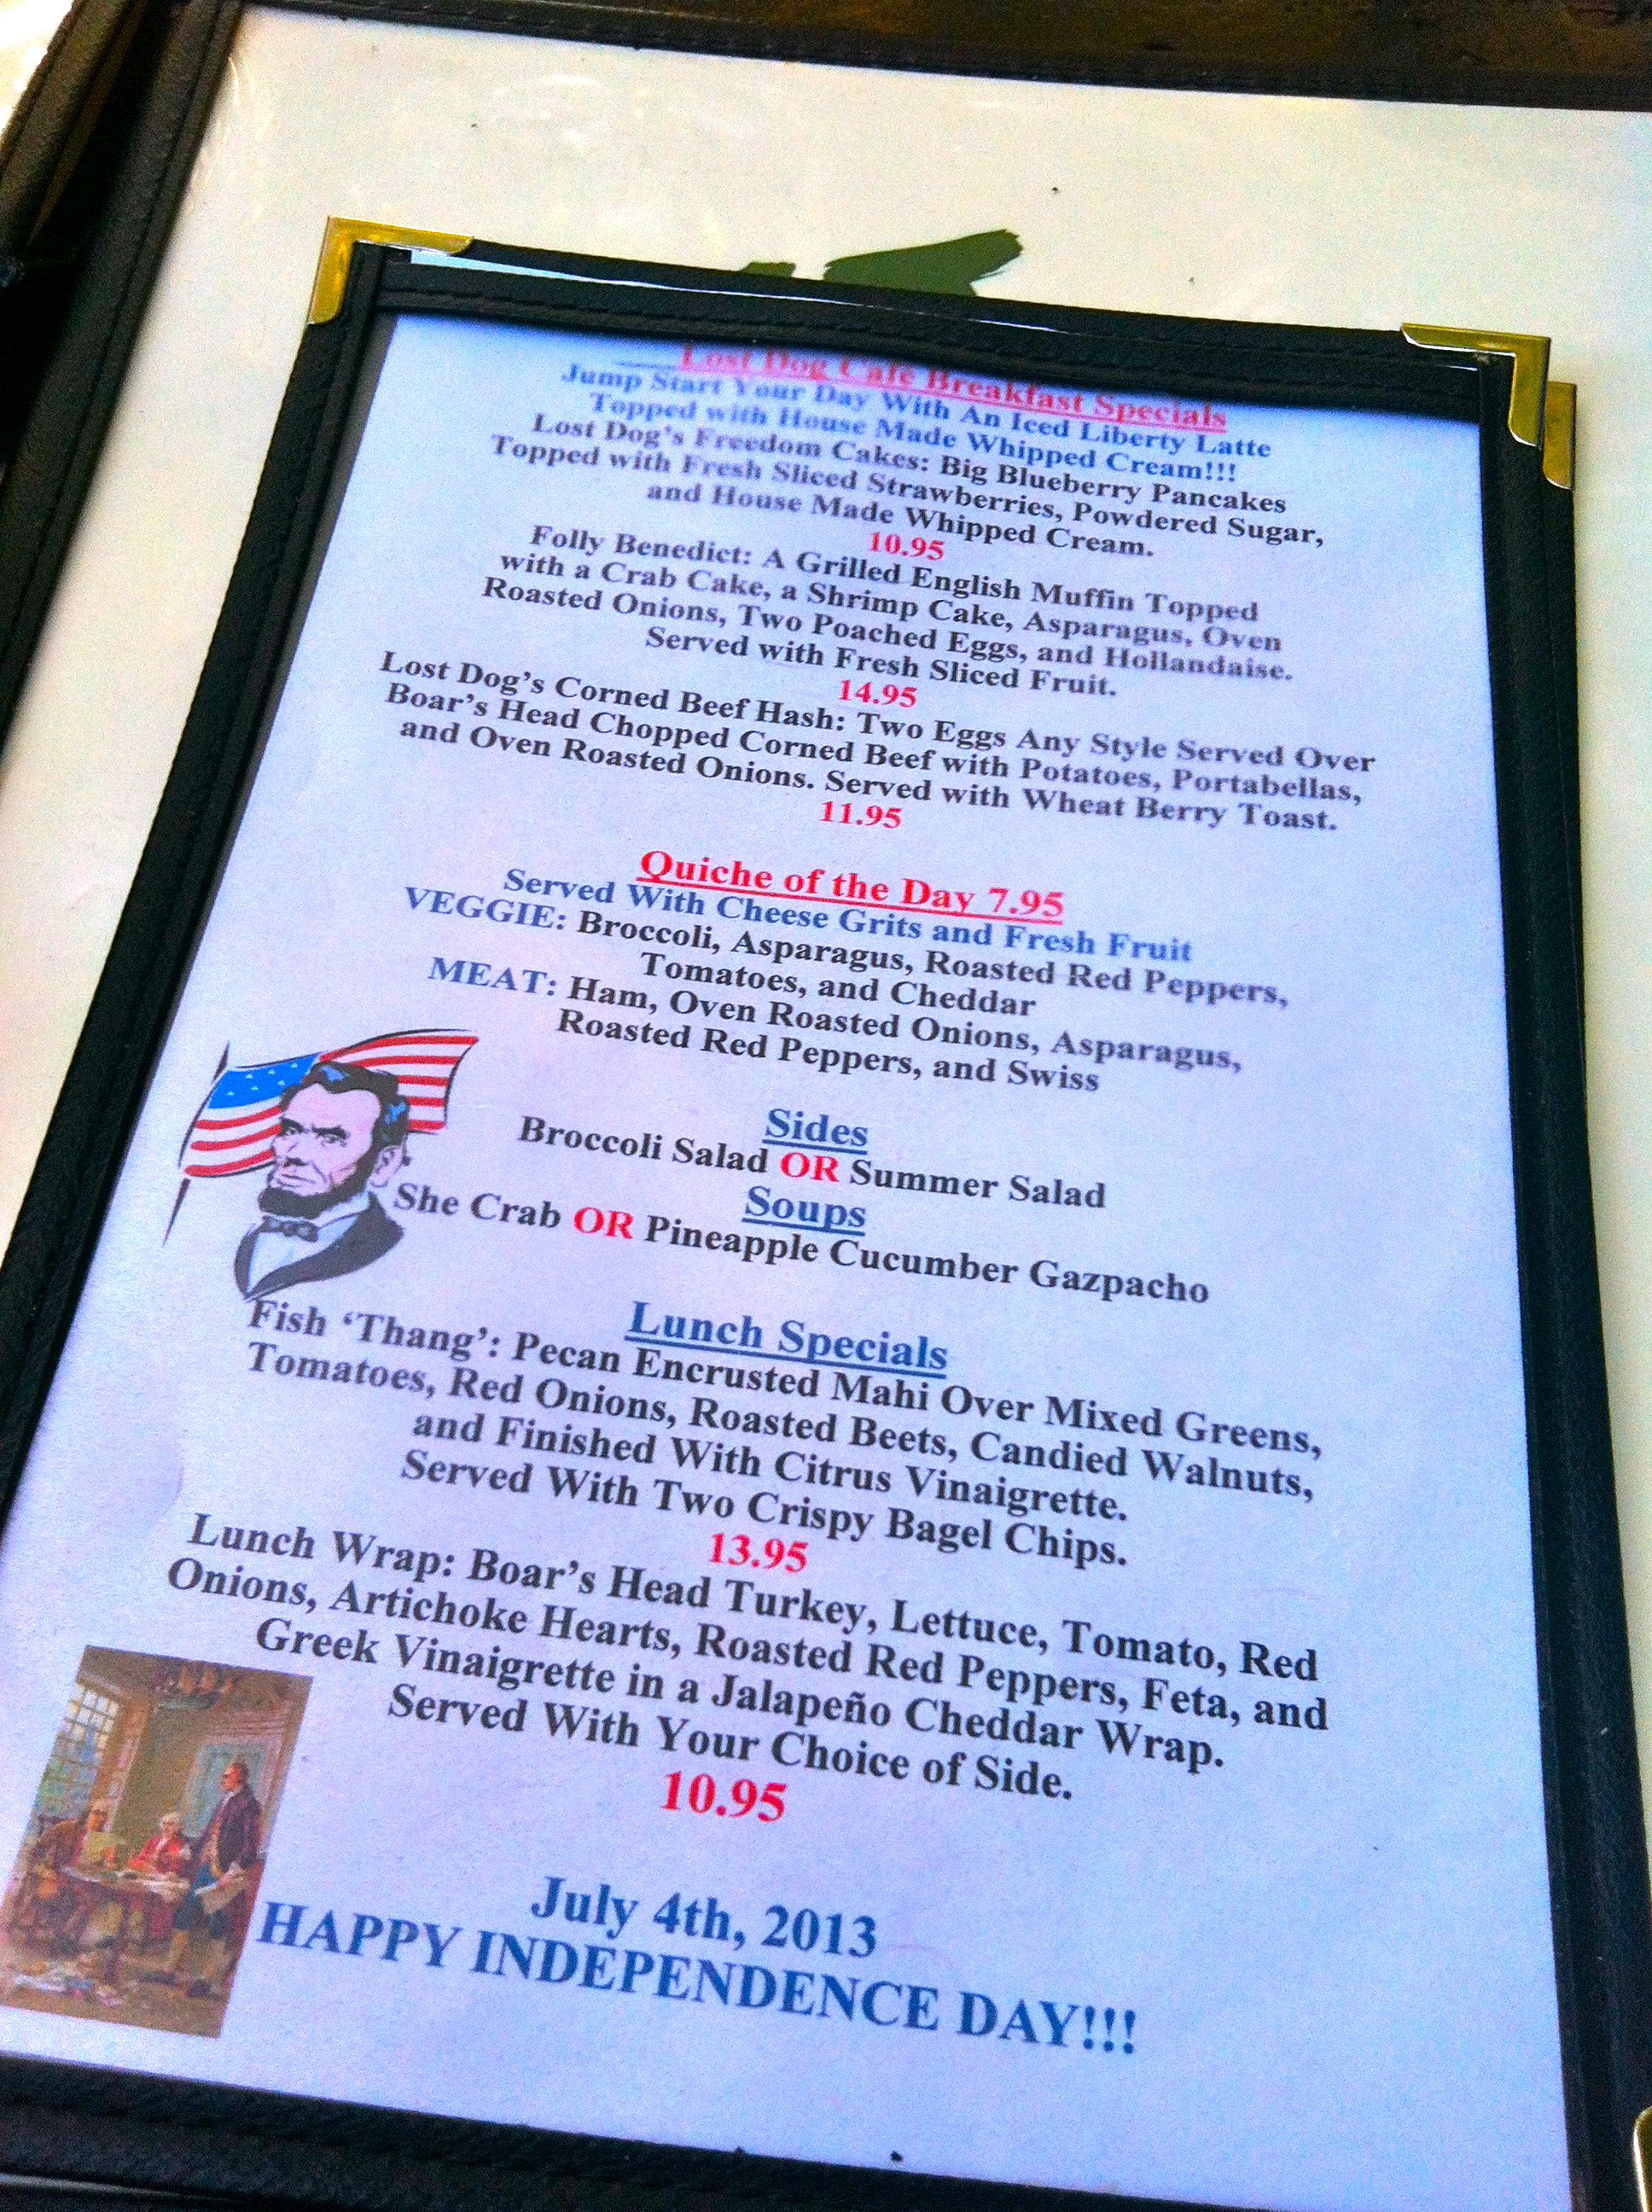 Lost Dog Cafe Breakfast Specials
Jump Start Your Day With An Iced Liberty Latte
Topped with House Made Whipped Cream!!!
Lost Dog's Freedom Cakes: Big Blueberry Pancakes
Topped with Fresh Sliced Strawberries, Powdered Sugar,
and House Made Whipped Cream.
10.95
Folly Benedict: A Grilled English Muffin Topped
with a Crab Cake, a Shrimp Cake, Asparagus, Oven
Roasted Onions, Two Poached Eggs, and Hollandaise.
Served with Fresh Sliced Fruit.
14.95
Lost Dog's Corned Beef Hash: Two Eggs Any Style Served Over
Boar's Head Chopped Corned Beef with Potatoes, Portabellas,
and Oven Roasted Onions. Served with Wheat Berry Toast.
11.95
Quiche of the Day 7.95
Served With Cheese Grits and Fresh Fruit
VEGGIE: Broccoli, Asparagus, Roasted Red Peppers,
Tomatoes, and Cheddar
MEAT: Ham, Oven Roasted Onions, Asparagus,
Roasted Red Peppers, and Swiss
Sides
Broccoli Salad OR Summer Salad
Soups
She Crab OR Pineapple Cucumber Gazpacho
Lunch Specials
Fish ‘Thang’: Pecan Encrusted Mahi Over Mixed Greens,
Tomatoes, Red Onions, Roasted Beets, Candied Walnuts,
and Finished With Citrus Vinaigrette.
Served With Two Crispy Bagel Chips.
13.95
Lunch Wrap: Boar's Head Turkey, Lettuce, Tomato, Red
Onions, Artichoke Hearts, Roasted Red Peppers, Feta, and
Greek Vinaigrette in a Jalapeño Cheddar Wrap.
Served With Your Choice of Side.
10.95
July 4th, 2013
HAPPY INDEPENDENCE DAY!!!